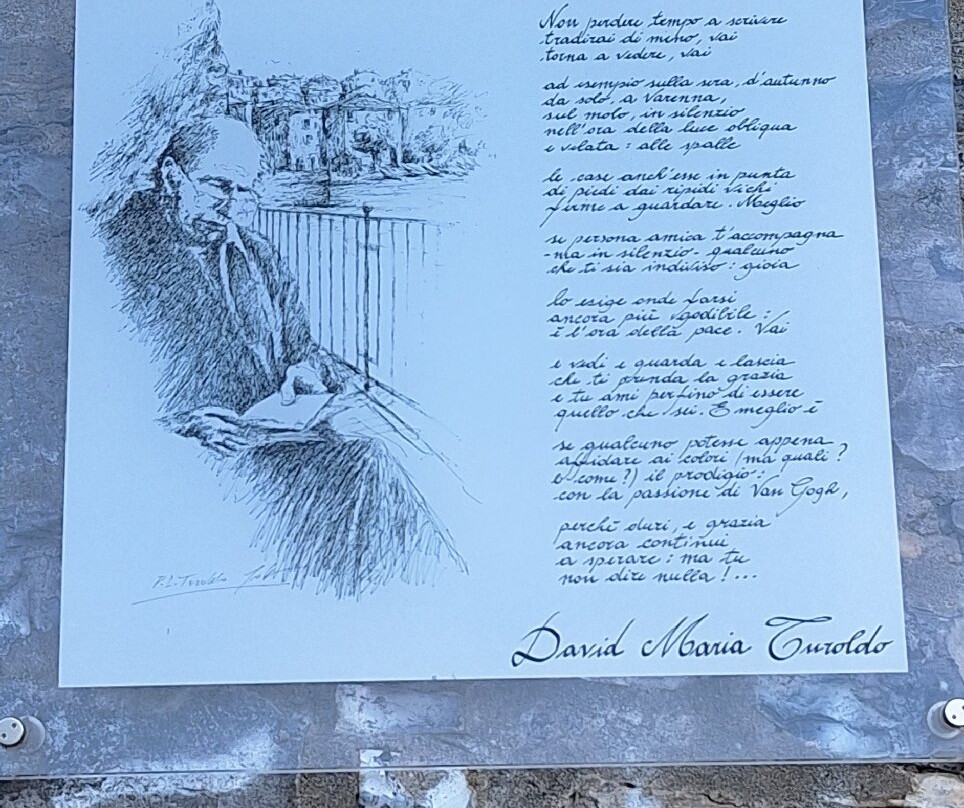 Non perdere tempo a scrivere
tradirai di meno, vai
torna a vedere, vai
ad esempio sulla sera, d'autunno
da solo, a Varenna,
sul molo, in silenzio
nell'ora della luce obliqua
e velata : alle spalle
le case anch'esse in punta
di piedi dai ripidi vichi
ferme a guardare. Meglio
se persona amica t'accompagna
-ma in silenzio- qualcuno
che ti sia indiviso : gioia
lo esige onde farsi
ancora più godibile :
è l'ora della pace. Vai
e vedi e guarda e lascia
che ti prenda la grazia
e tu ami perfino di essere
quello che sei. E meglio è
se qualcuno potesse appena
affidare ai colori (ma quali ?
e come ?) il prodigio :
con la passione di Van Gogh,
perchè duri, e grazia
ancora continui
a sperare : ma tu
non dire nulla !...
P.L. Turoldo
David Maria Turoldo